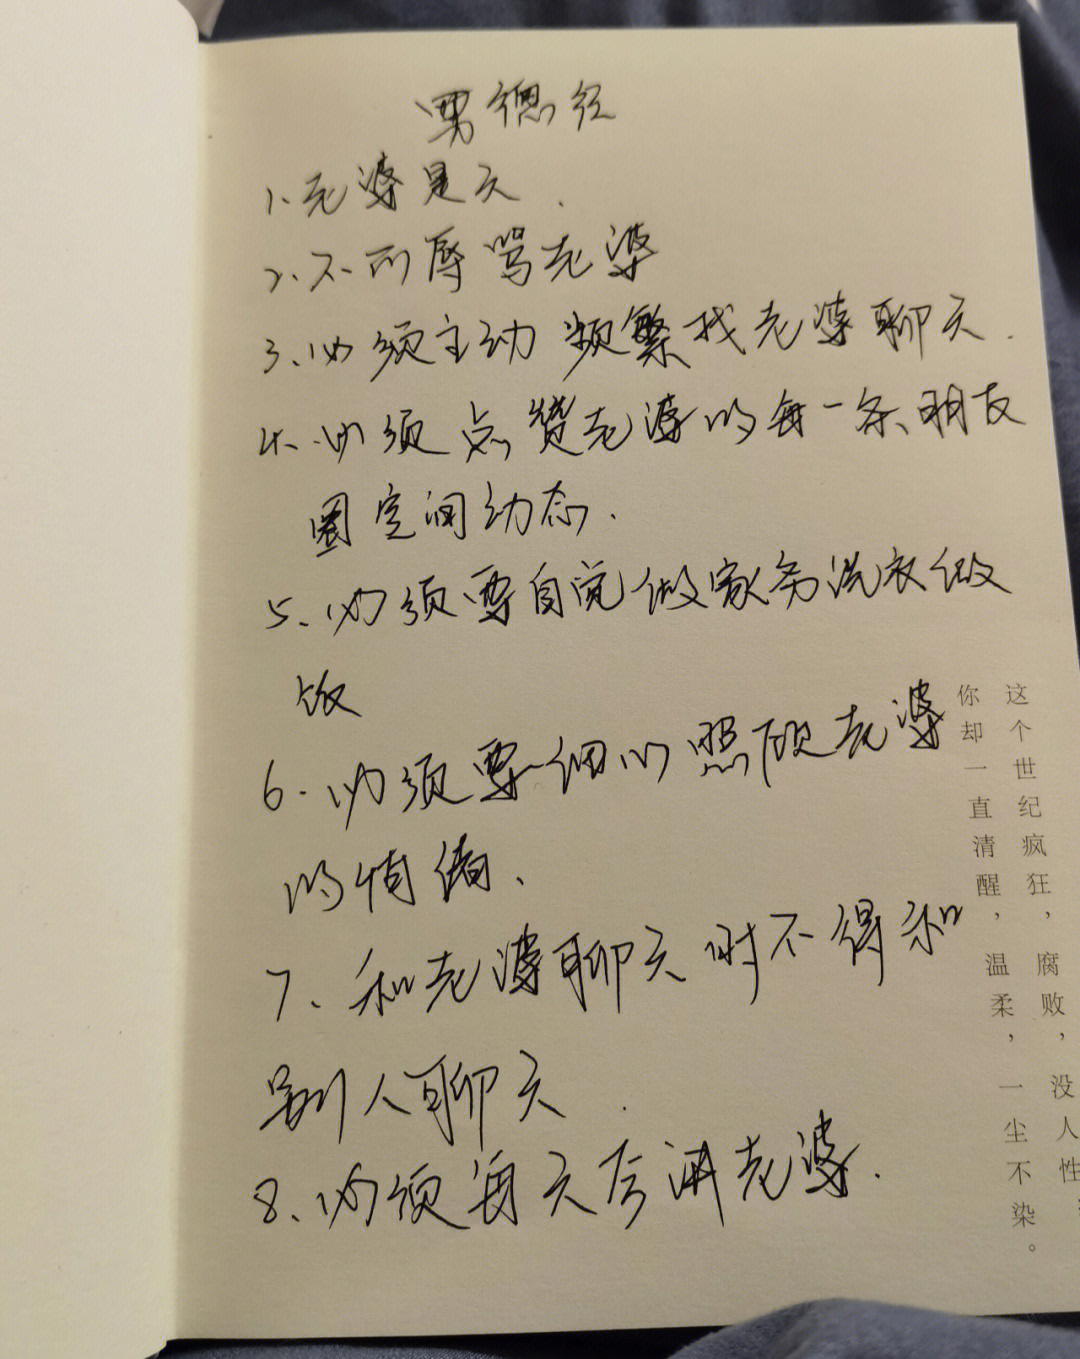 男德经
1.老婆是天.
2、不可辱骂老婆
3、必须主动频繁找老婆聊天.
4、必须点赞老婆的每一条朋友
圈空间动态.
5、必须要自觉做家务洗衣做
饭
6.必须要细心照顾老婆
的情绪、
7、和老婆聊天时不得和
别人聊天.
8、必须每天夸讲老婆.
这个世纪疯狂，腐败，没人性
你却一直清醒，温柔，一尘不染。